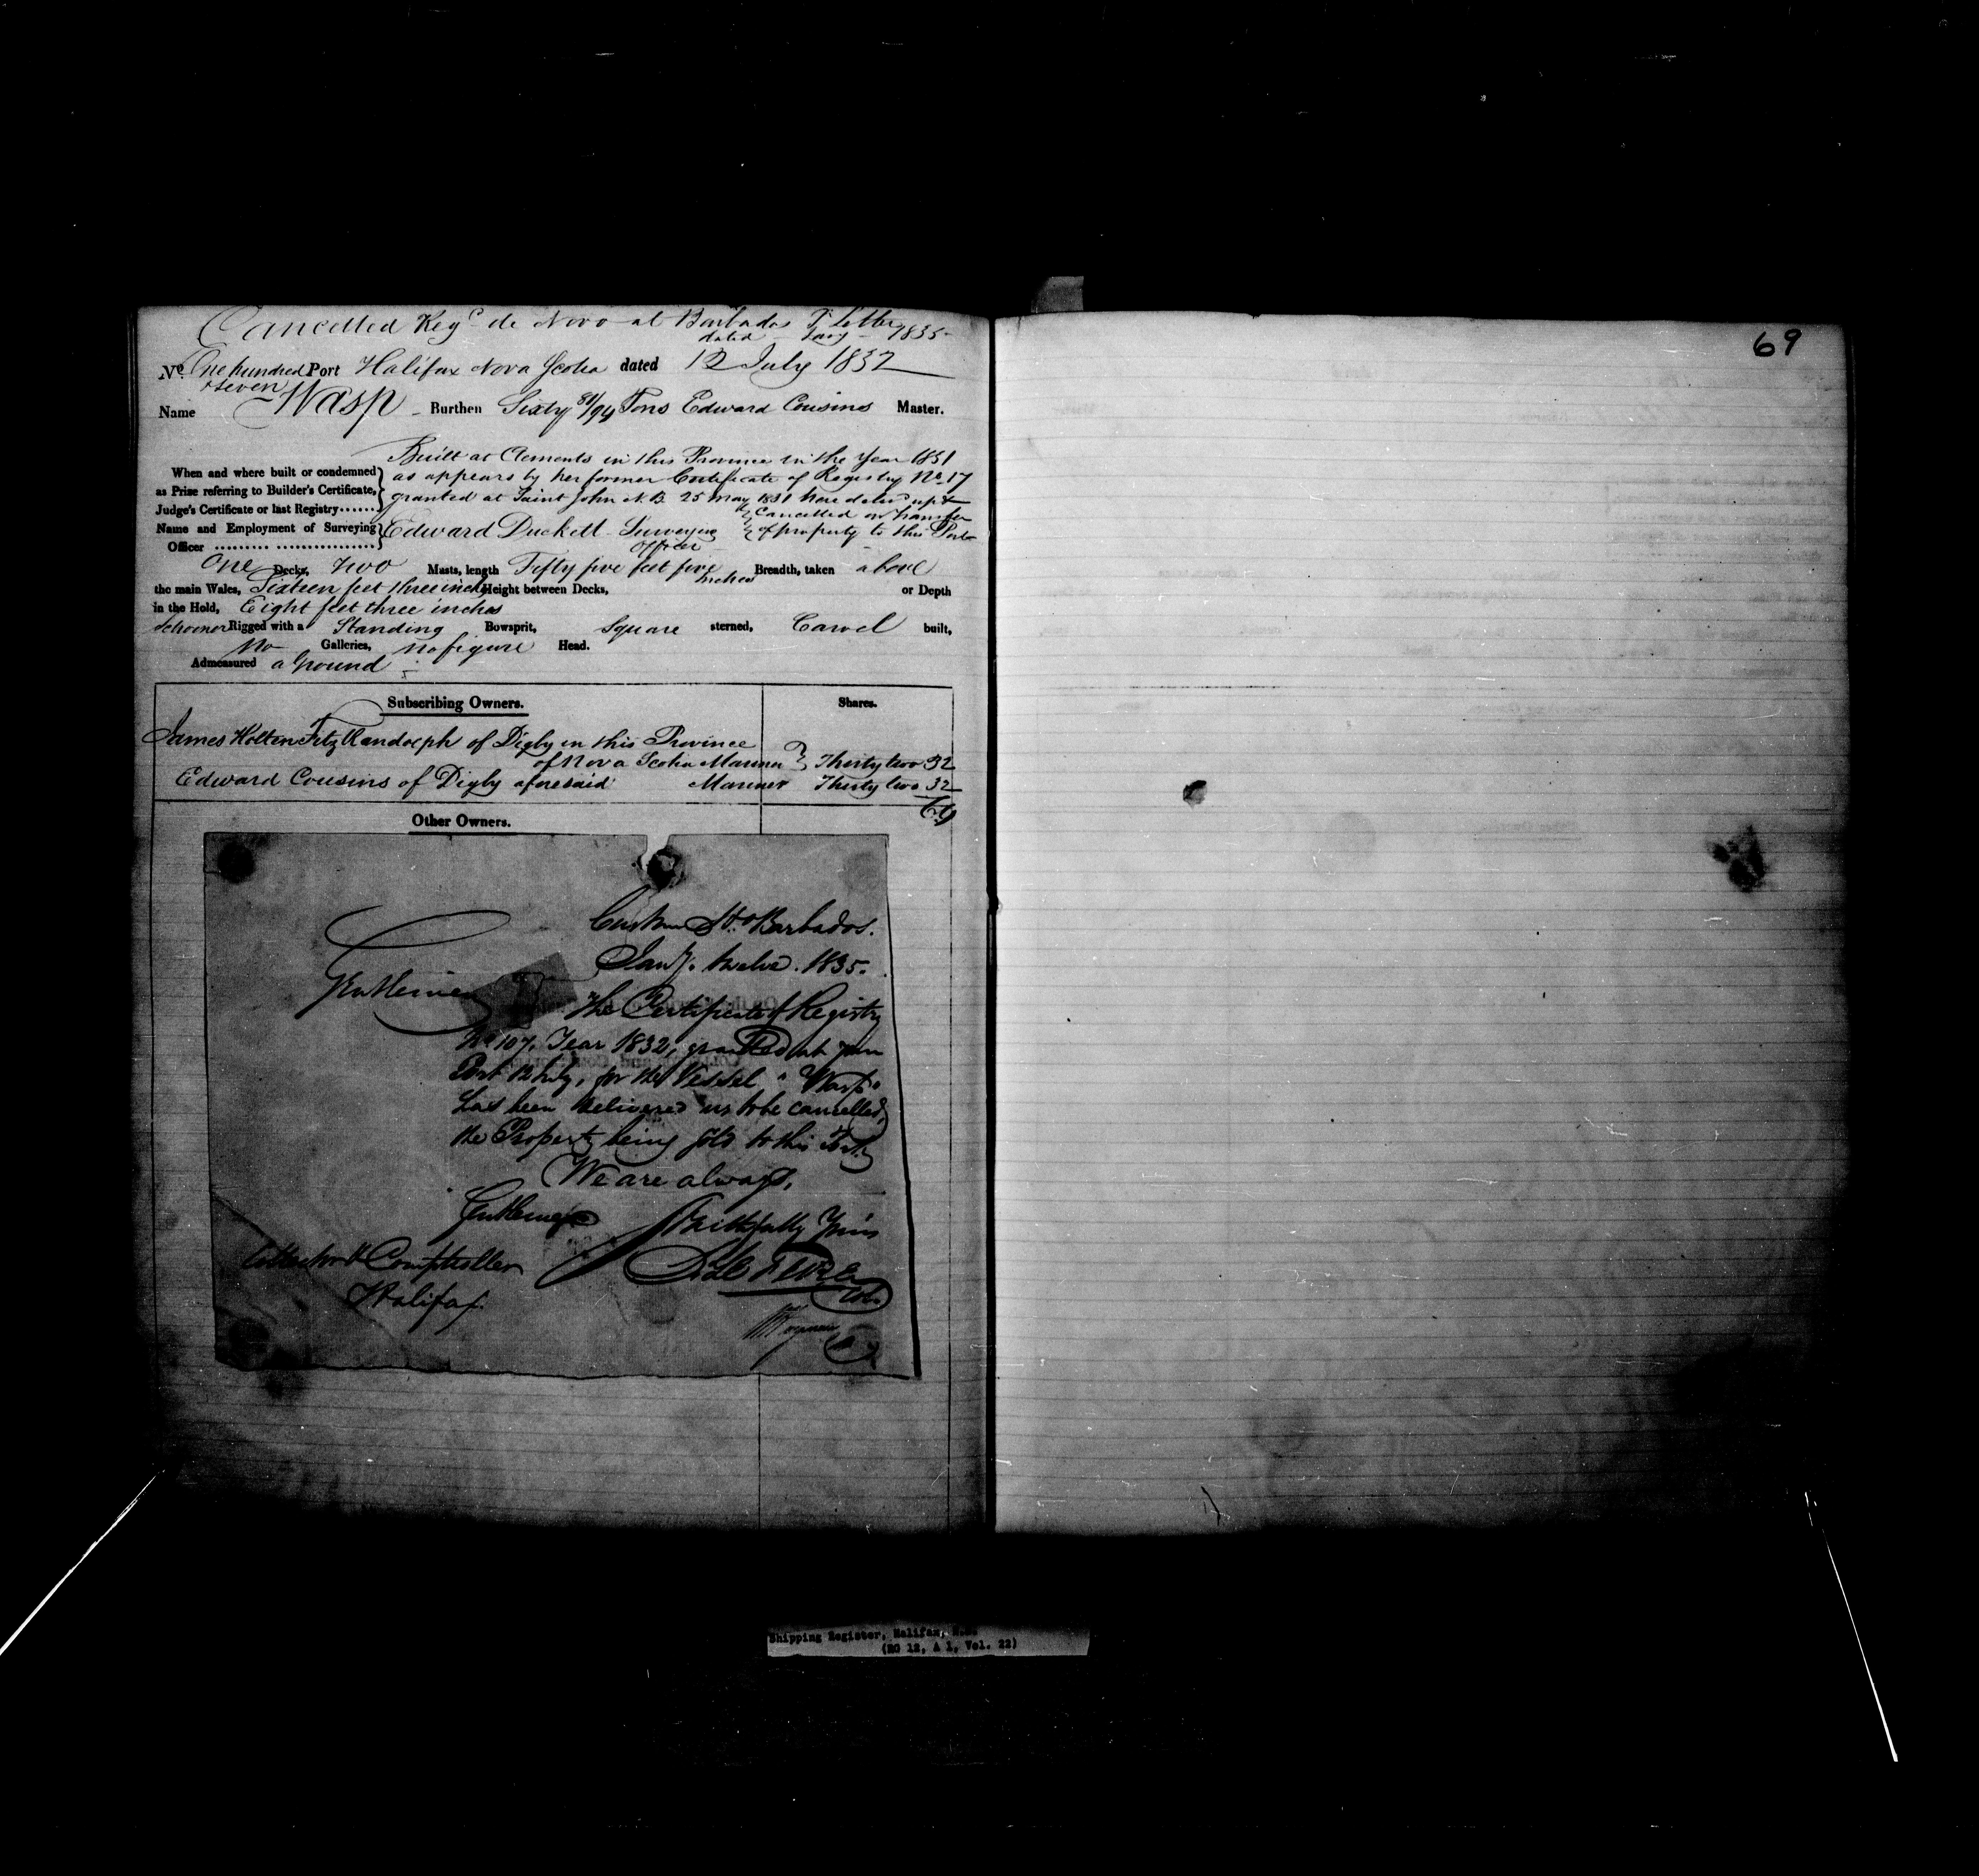 Cancelled Regd de Novo at Barbados Pr Letter
dated Jany 1835
No. One hundred Port Halifax Nova Scotia dated 12 July 1832
& seven
Name Wasp Burthen Sixty 81/94 Tons Edward Cousins Master.
Built at Clements in this Province in the Year 1831
When and where built or condemned as appears by her former Certificate of Registry No 17
as Prize referring to Builder's Certificate, granted at Saint John N.B. 25 May 1831 here delivd up &
Judge's Certificate or last Registry...... Cancelled on transfer
Name and Employment of Surveying Edward Duckett Surveying of property to this Port
Officer .......... ................ Officer
One Decks, Two Masts, length Fifty five feet five Breadth, taken above
inches
the main Wales, Sixteen feet three inches Height between Decks, or Depth
in the Hold, Eight feet three inches
Schooner Rigged with a Standing Bowsprit, Square sterned, Carvel built,
No Galleries, no figure Head.
Admeasured a Ground
Subscribing Owners. Shares.
James Holten FitzRandolph of Digby in this Province
of Nova Scotia Mariner Thirty two 32
Edward Cousins of Digby aforesaid Mariner Thirty two 32
64
Other Owners.
Custom Ho Barbados.
Jany. twelve. 1835.
Gentlemen
The Certificate of Registry
No 107, Year 1832, granted at your
Port 12 July, for the Vessel "Wasp"
has been delivered us to be cancelled,
the Property being sold to this Port.
We are always,
Gentlemen
Faithfully Yours
Collector & Comptroller
Halifax.
Col.
69
Shipping Register, Halifax, N.S.
(RG 12, A 1, Vol. 22)